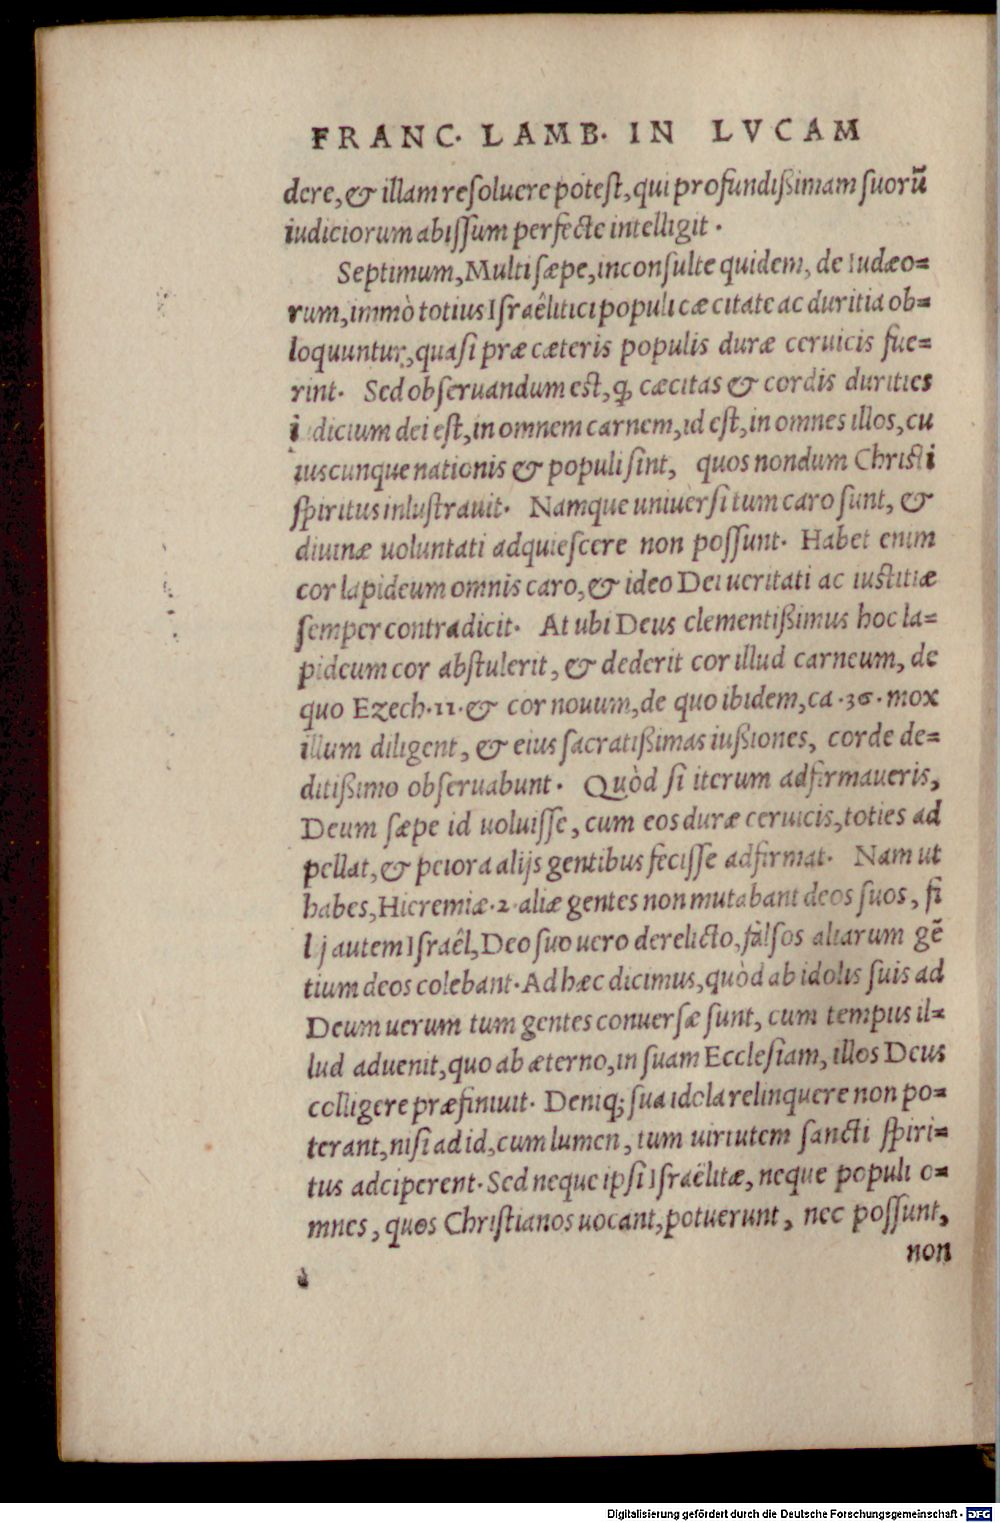 FRANC. LAMB. IN LVCAM
dere, & illam reſoluere poteſt, qui profundiſsimam ſuorũ
iudiciorum abiſſum perfecte intelligit.
Septimum, Multi ſæpe, inconſulte quidem, de Iudæo=
rum, immò totius Iſraêlitici populi cæcitate ac duritia ob=
loquuntur, quaſi præ cæteris populis duræ ceruicis fue=
rint. Sed obſeruandum eſt, ꝙ cæcitas & cordis durities
iudicium dei eſt, in omnem carnem, id eſt, in omnes illos, cu
iuscunque nationis & populi ſint, quos nondum Chriſti
ſpiritus inluſtrauit. Namque uniuerſi tum caro ſunt, &
diuinæ uoluntati adquieſcere non poſſunt. Habet enim
cor lapideum omnis caro, & ideo Dei ueritati ac iuſtitiæ
ſemper contradicit. At ubi Deus clementißimus hoc la=
pideum cor abſtulerit, & dederit cor illud carneum, de
quo Ezech. 11. & cor nouum, de quo ibidem, ca. 36. mox
illum diligent, & eius ſacratißimas iußiones, corde de=
ditißimo obſeruabunt. Quòd ſi iterum adfirmaueris,
Deum ſæpe id uoluiſſe, cum eos duræ ceruicis, toties ad
pellat, & peiora alijs gentibus feciſſe adfirmat. Nam ut
habes, Hieremiæ. 2. aliæ gentes non mutabant deos ſuos, fi
lij autem Iſraêl, Deo ſuo uero derelicto, falſos aliarum gẽ
tium deos colebant. Ad hæc dicimus, quòd ab idolis ſuis ad
Deum uerum tum gentes conuerſæ ſunt, cum tempus il=
lud aduenit, quo ab æterno, in ſuam Eccleſiam, illos Deus
colligere præfiniuit. Deniq; ſua idola relinquere non po=
terant, niſi ad id, cum lumen, tum uirtutem ſancti ſpiri=
tus adciperent. Sed neque ipſi Iſraêlitæ, neque populi o=
mnes, quos Chriſtianos uocant, potuerunt, nec poſſunt,
non
Digitalisierung gefördert durch die Deutsche Forschungsgemeinschaft - DFG